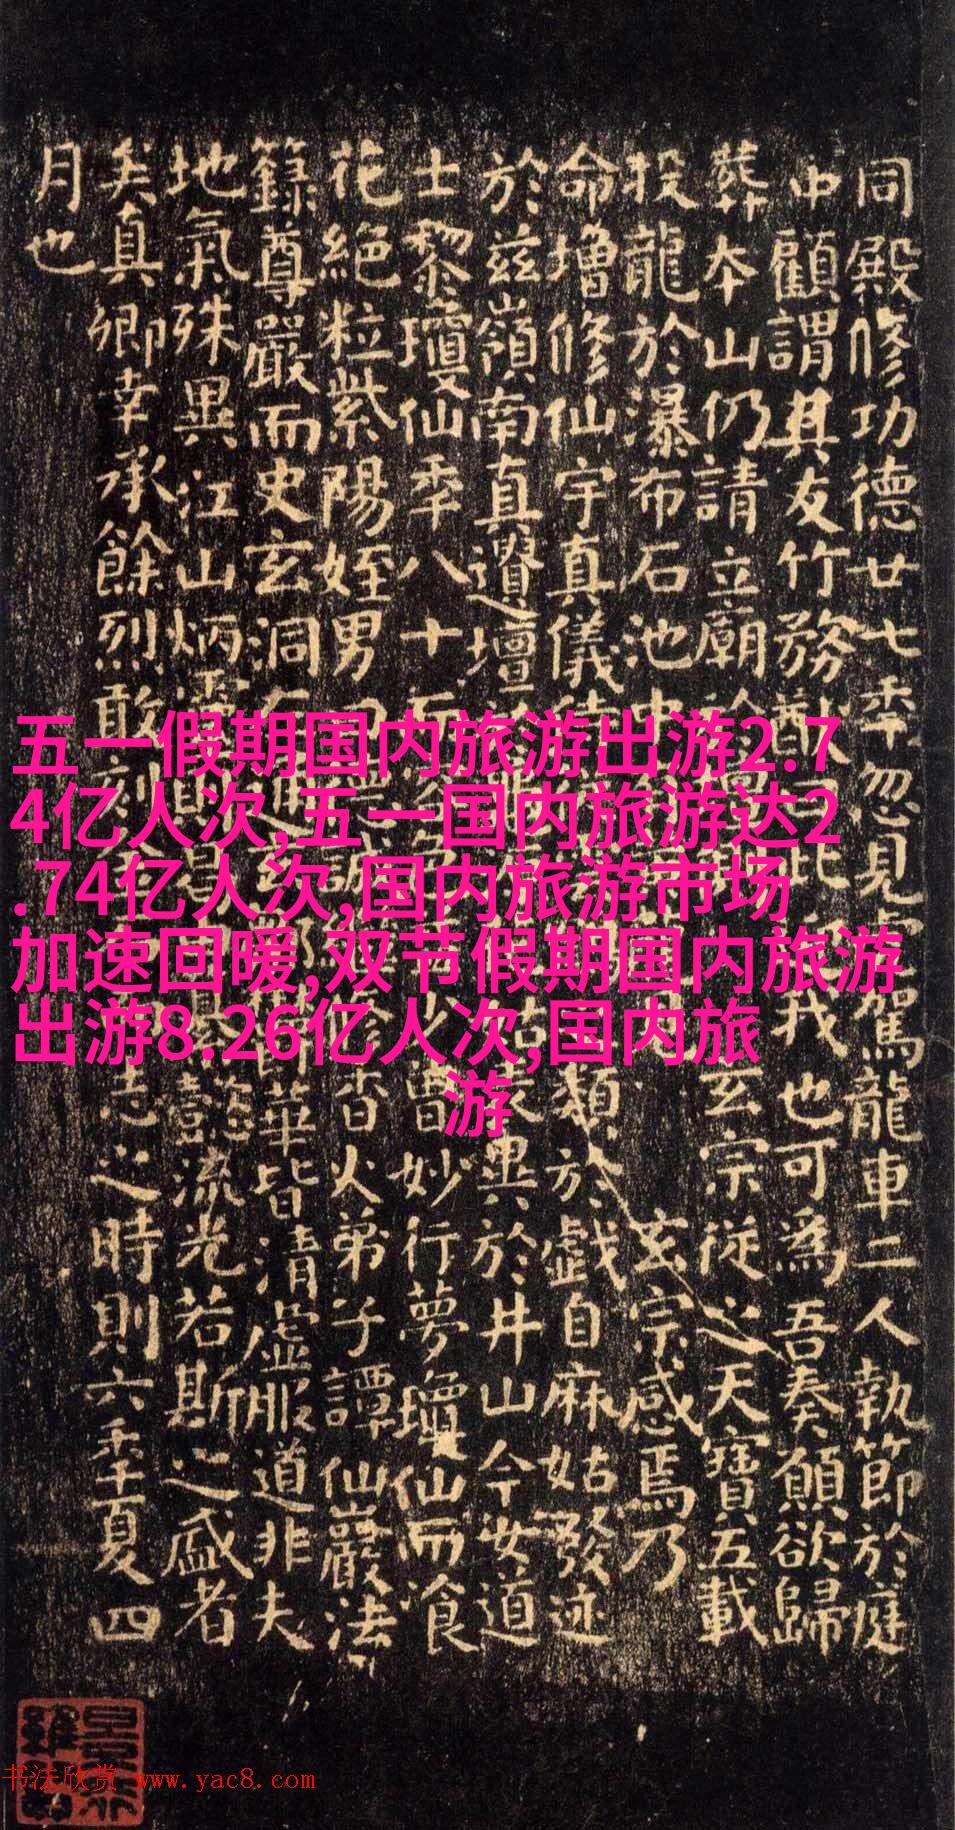 同殿修功德廿七年忽見虎駕龍車二人執節於庭
中顧謂其友竹務猷此我也可為吾奏願欲歸
葬本山仍請立廟於玄宗從之天寶五載
投龍於瀑布石池中玄宗感焉乃
命增修仙宇真儀侍類於戲自麻姑發迹
於茲嶺南真遺壇表異於井山今女道
士黎瓊仙年八十而少曾妙行夢瓊仙而飡
花絕粒紫陽姪男曰修香火弟子譚仙巖法
籙尊嚴而史玄洞左通鬱華皆清虛服道非夫
地氣殊異江山炳靈懿流光若斯之盛者
矣真卿幸承餘烈敢刻志之時則六年夏四
月也
五一假期国内旅游出游2.7
4亿人次,五一国内旅游达2
.74亿人次,国内旅游市场
加速回暖,双节假期国内旅游
出游8.26亿人次,国内旅
游
书法欣赏 www.yac8.com